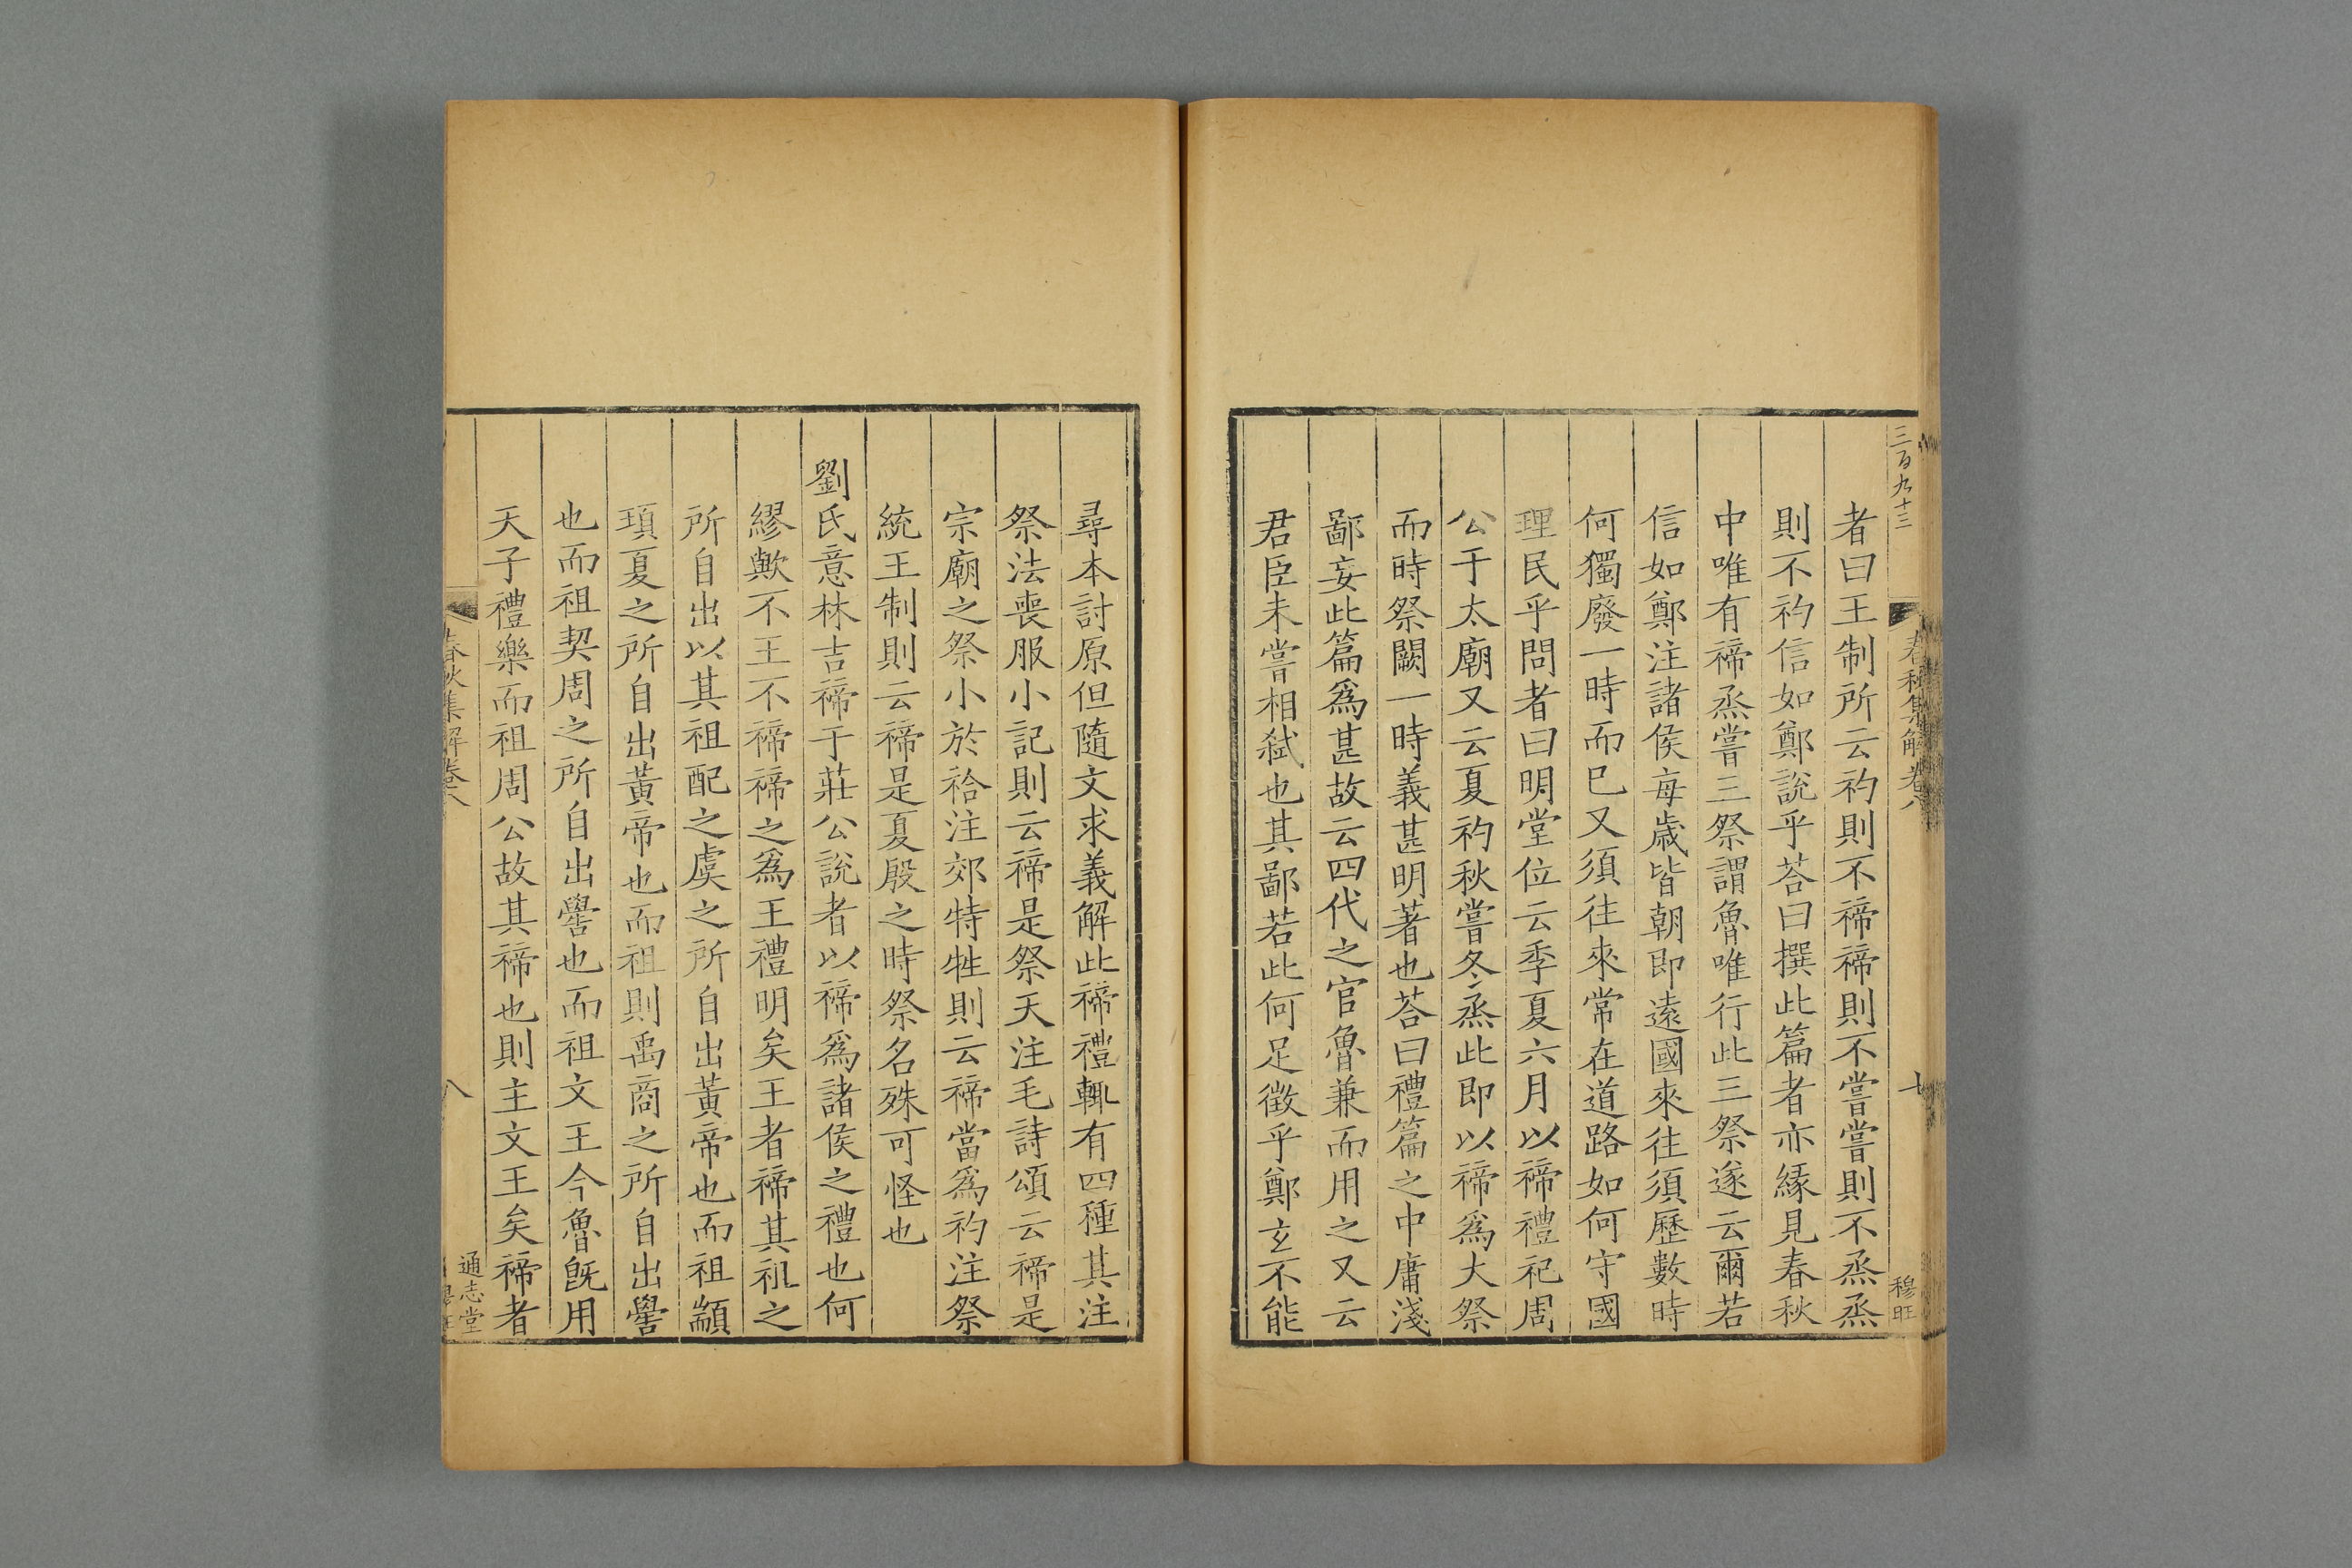 三百九十三
春秋集解卷八
七
穆旺
者曰王制所云礿則不禘禘則不嘗嘗則不烝烝
則不礿信如鄭說乎荅曰撰此篇者亦緣見春秋
中唯有禘烝嘗三祭謂魯唯行此三祭遂云爾若
信如鄭注諸侯每歲皆朝即遠國來往須歷數時
何獨廢一時而已又須往來常在道路如何守國
理民乎問者曰明堂位云季夏六月以禘禮祀周
公于太廟又云夏礿秋嘗冬烝此即以禘爲大祭
而時祭闕一時義甚明著也荅曰禮篇之中庸淺
鄙妄此篇爲甚故云四代之官魯兼而用之又云
君臣未嘗相弑也其鄙若此何足徵乎鄭玄不能
尋本討原但隨文求義解此禘禮輒有四種其注
祭法喪服小記則云禘是祭天注毛詩頌云禘是
宗廟之祭小於祫注郊特牲則云禘當爲礿注祭
統王制則云禘是夏殷之時祭名殊可怪也
劉氏意林吉禘于莊公說者以禘爲諸侯之禮也何
繆歟不王不禘禘之爲王禮明矣王者禘其祖之
所自出以其祖配之虞之所自出黃帝也而祖顓
頊夏之所自出黃帝也而祖則禹商之所自出嚳
也而祖契周之所自出嚳也而祖文王今魯旣用
天子禮樂而祖周公故其禘也則主文王矣禘者
春秋集解卷八
八
通志堂